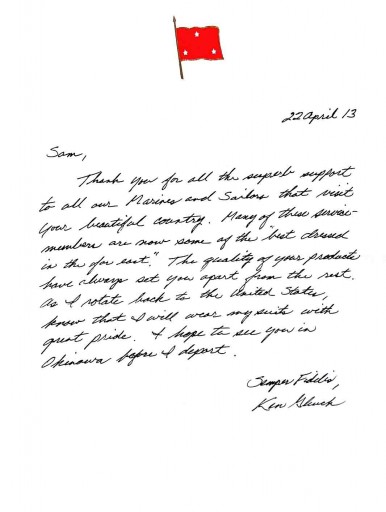 22 April 13
Sam,
Thank you for all the superb support
to all our Marines and Sailors that visit
your beautiful country. Many of these service-
members are now some of the "best dressed
in the far east." The quality of your products
have always set you apart from the rest.
As I rotate back to the United States,
know that I will wear my suits with
great pride. I hope to see you in
Okinawa before I depart.
Semper Fidelis,
Ken